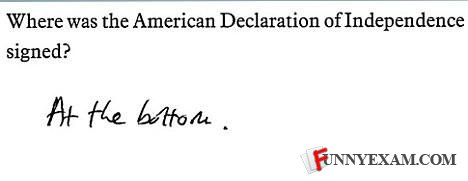 Where was the American Declaration of Independence
signed?
At the bottom.
FUNNYEXAM.COM